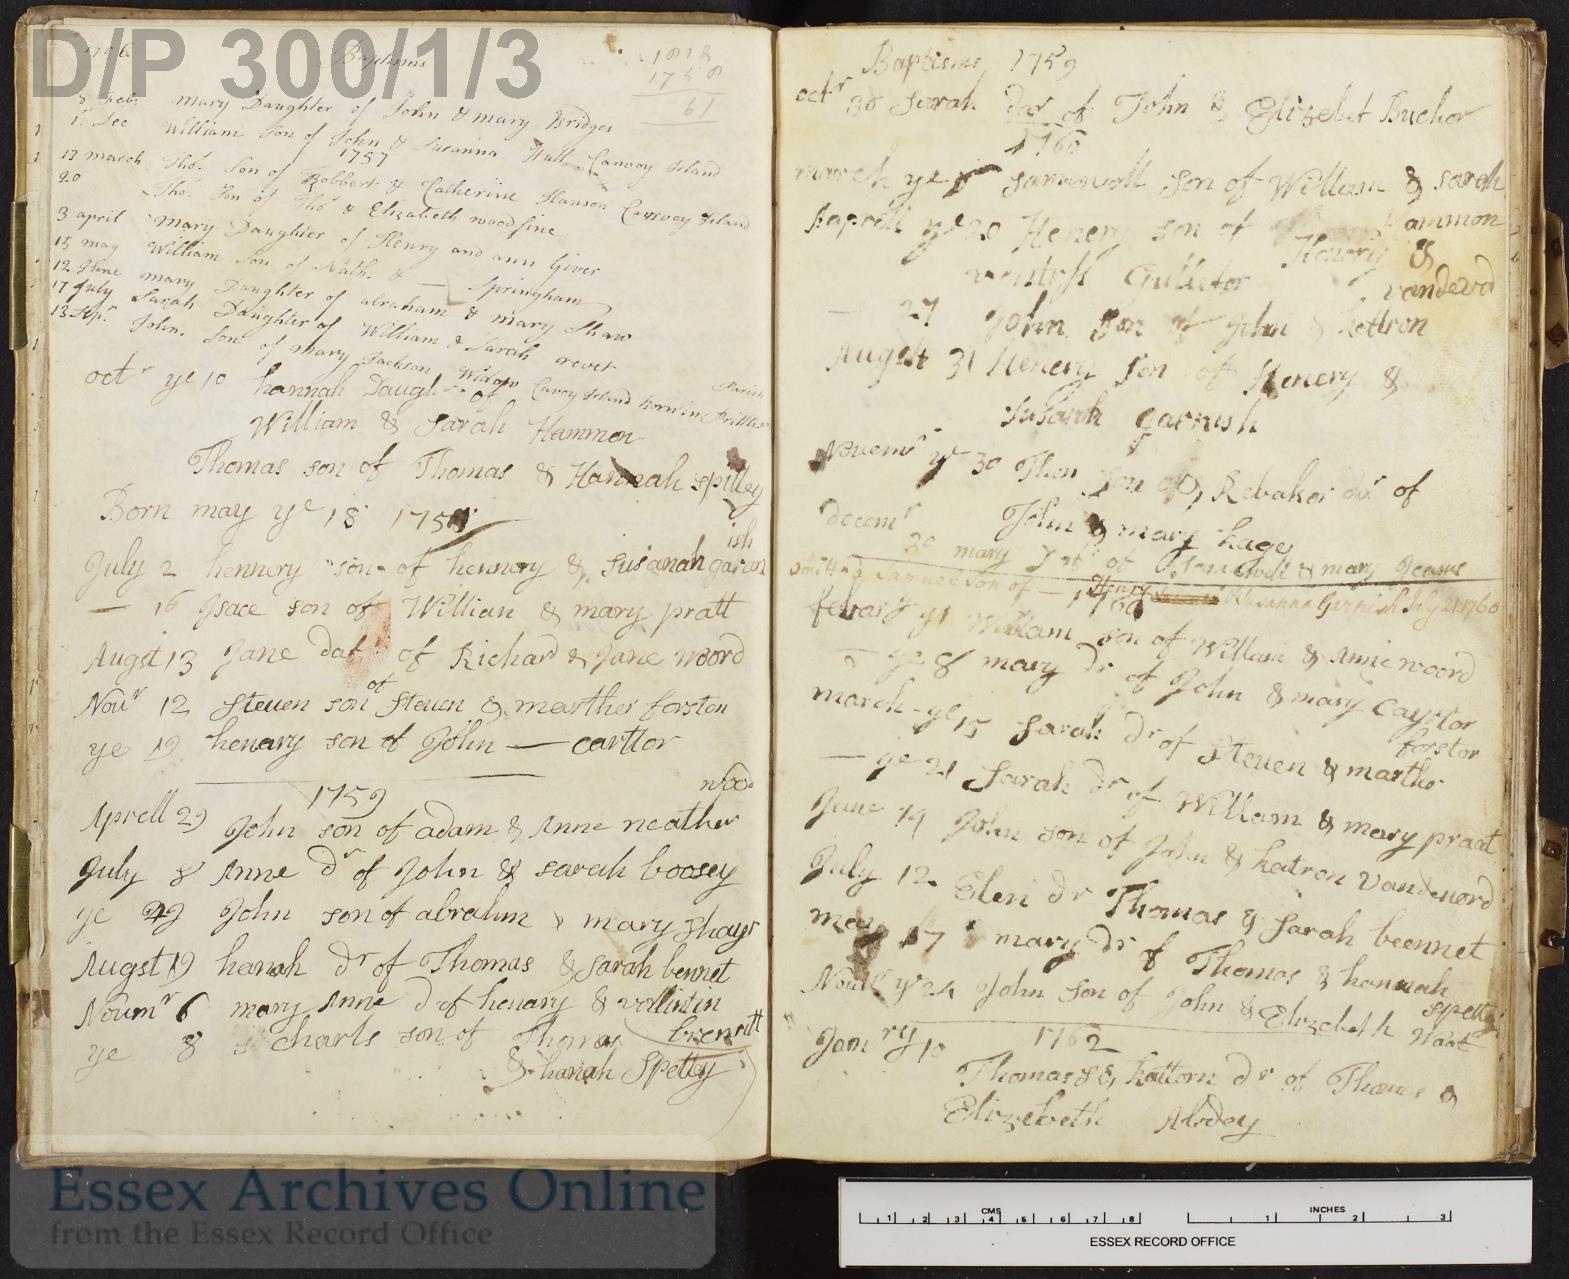 D/P 300/1/3
Baptisms
1818
1758
61
8 Feb. Mary Daughter of John & Mary Bridges
1. Dec William Son of John & Susanna Canvey Island
1757
13 march Tho. Son of Robbert & Catherine Hanson Canvey Island
20 Tho. Son of Tho & Elizabeth woodfine
3 april Mary Daughter of Henry and ann Giver
15 may William Son of Nath. & — Springham
12 June mary Daughter of abraham & mary Shaw
17 July Sarah Daughter of William & Sarah revet
13 Sepr. John. Son of mary Jackson Widow Canvey Island Born in Prittlewell Parish
octr ye 10 hannah Daugh of
William & Sarah Hammon
Thomas son of Thomas & Hannah spilley
Born may ye 18 1758
July 2 hennery son of hennery & susanah garan
ish
— 16 Isace son of Willian & mary pratt
Augst 13 Jane dat of Richard & Jane woord
Novr 12 Steven son of Steven & marther forston
ye 19 henary son of John — carttor
1759
Aprell 29 John son of adam & Anne neather
wood
July 8 Anne Dr of John & sarah boosey
ye 29 John son of abrahm & mary Shays
Augst 19 hanah Dr of Thomas & sarah bennet
Novmr 6 mary Anne D of henary & vollintin
ye 8 charls son of Thomas
& hanah Spetty
Baptisms 1759
octr 30 Sarah dar of John & Elizebet Buckor
1760
march ye son of Willam & Sarah
Hammon
Aaprell ye 20 Henery son of Henery &
Gullifor
vandevord
— 27 John Son of John & Kattron
Augst 31 Henery Son of Henery &
Susanh garnish
Novemr ye 30 Thon Son & Rebakor dar of
John & mary hage
Decemr 30 mary of & mary Jeams
omitted Samuel Son of — Henry & Susanna Garnish July 21 1760
febary ye 1 William son of Willam & Anne woord
— ye 8 mary Dr of John & mary Caystor
march - ye 15 Sarah Dr of Steven & marther
forstor
— ye 21 Sarah Dr of Willam & mary praat
June 14 John son of John & katron Vandevord
July 12 Elen Dr Thomas & Sarah beennet
may 17 mary Dr of Thomas & hannah
spetty
Novr ye 24 John Son of John & Elizebeth Waat
1762
Janry 10
Thomas S & kattorn Dr of Thomas &
Elizebeth Abdey
Essex Archives Online
from the Essex Record Office
CMS
1 2 3 4 5 6 7 8
INCHES
1 2 3
ESSEX RECORD OFFICE